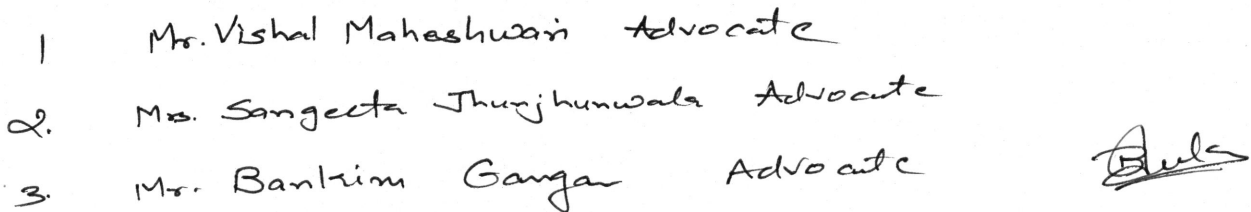 1 Mr. Vishal Maheshwari Advocate
2. Mrs. Sangeeta Jhunjhunwala Advocate
3. Mr. Bankim Gangar Advocate